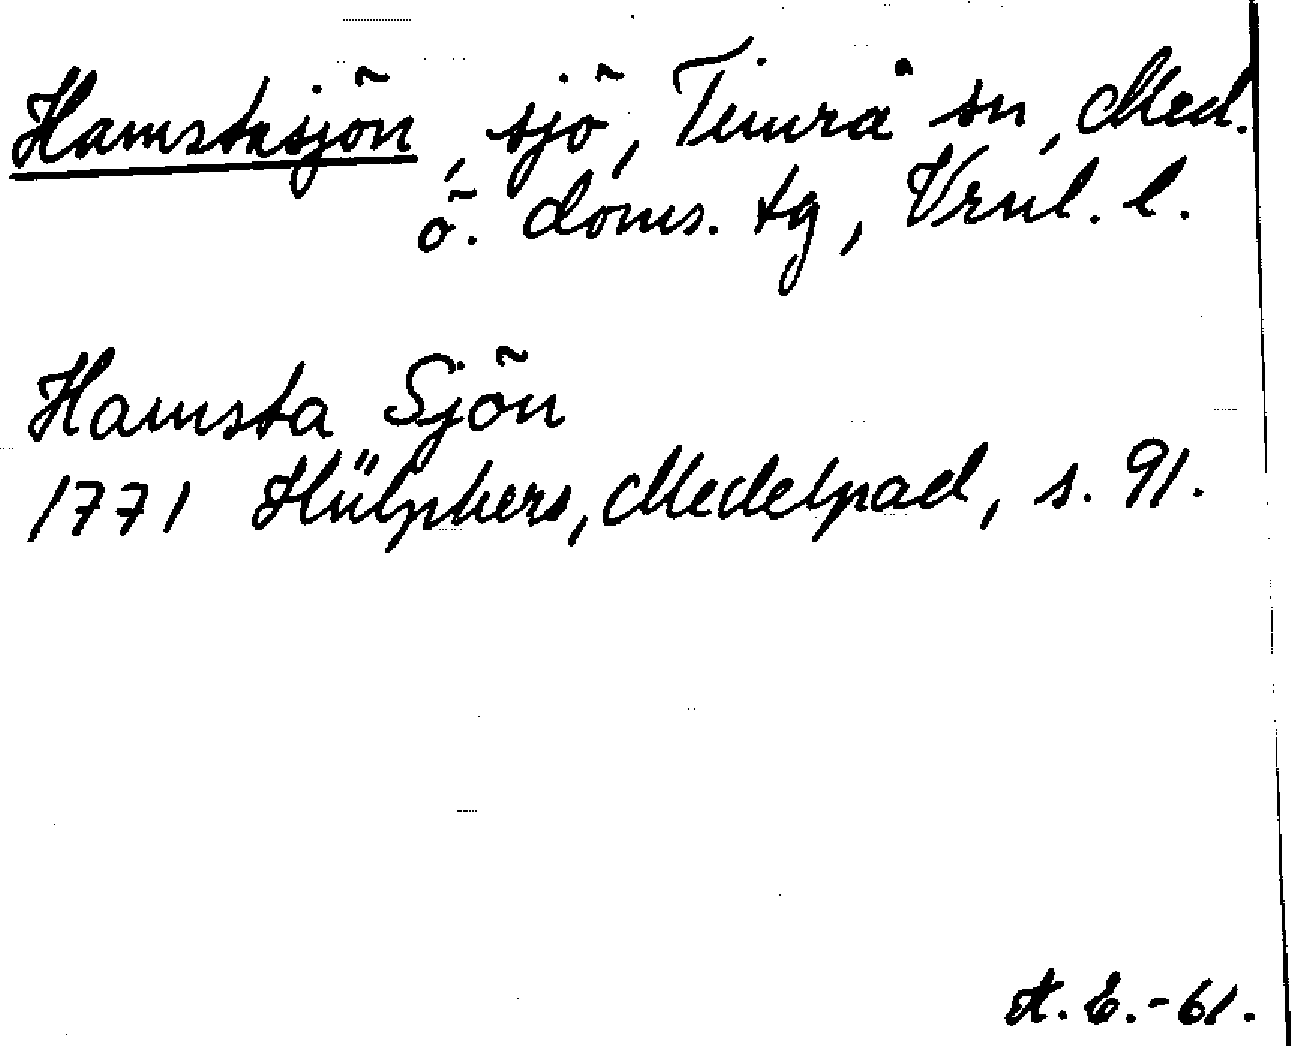 Hamstasjön, sjö, Timrå sn, Med.
ö. doms. tg, Vrnl. l.
Hamsta Sjön
1771 Hülphers, Medelpad, s. 91.
A. E. -61.